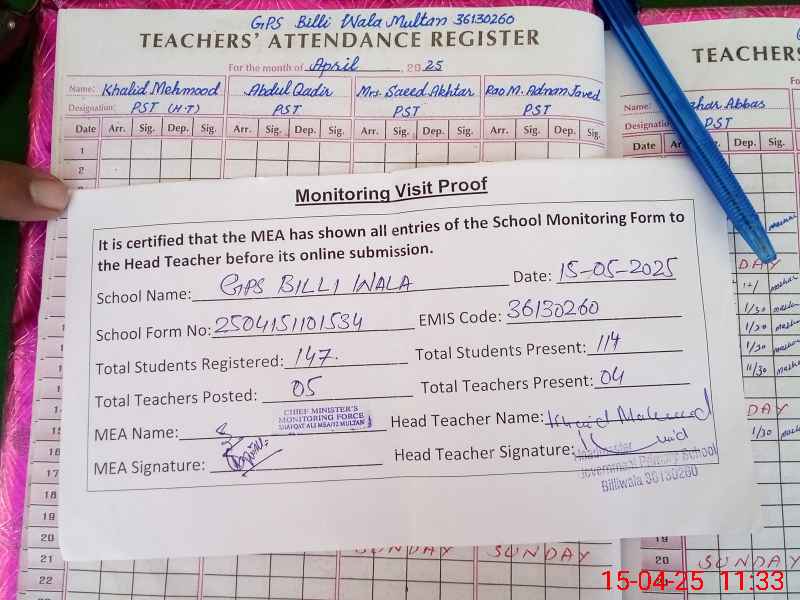 GPS Billi Wala Multan 36130260
TEACHERS' ATTENDANCE REGISTER
For the month of April, 2025
Name: Khalid Mehmood Abdul Qadir Mrs. Saeed Akhtar Rao M. Adnan Javed
Designation: PST (H.T) PST PST PST
Date Arr. Sig. Dep. Sig. Arr. Sig. Dep. Sig. Arr. Sig. Dep. Sig. Arr. Sig. Dep. Sig.
1
2
TEACHERS
Name: Abbas
PST
Date Dep. Sig.
Monitoring Visit Proof
It is certified that the MEA has shown all entries of the School Monitoring Form to
the Head Teacher before its online submission.
School Name: GPS BILLI WALA Date: 15-05-2025
School Form No: 2504151101534 EMIS Code: 36130260
Total Students Registered: 147. Total Students Present: 114
Total Teachers Posted: 05 Total Teachers Present: 04
MEA Name: Head Teacher Name: Khalid Mahmood
CHIEF MINISTER'S
MONITORING FORCE
SHAFQAT ALI MEA/12 MULTAN
MEA Signature: Head Teacher Signature:
Headmaster
Government Primary School
Billiwala 36130260
DAY
1/30
1/30
1/30
11/30
DAY
1/30
17
18
19
20 SUNDAY SUNDAY
21
22
19
20 SUNDAY
15-04-25 11:33